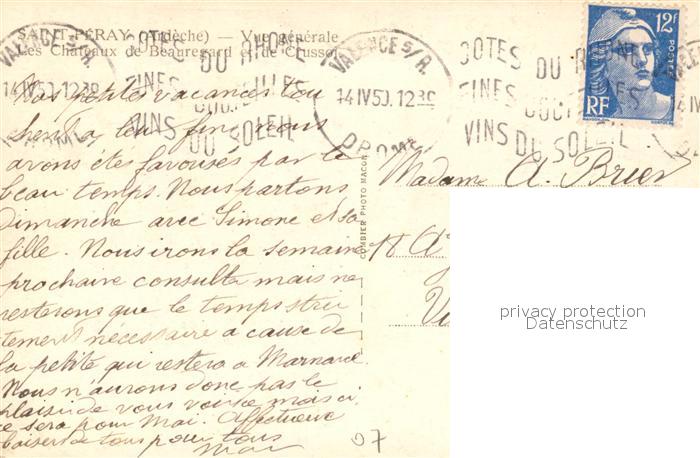 SAINT-PERAY (Ardèche) — Vue générale
Les Châteaux de Beauregard et de Crussol
VALENCE S/R.
14 IV 50. 12 30
DROME
COTES DU RHONE
FINES BOUTEILLES
VINS DU SOLEIL
VALENCE S/R.
14 IV 50. 12 30
DROME
COTES DU RHONE
FINES BOUTEILLES
VINS DU SOLEIL
12F
POSTES
RF
Nos petites vacances tou
chent à leur fin nous
avons étés favorisés par le
beau temps. Nous partons
Dimanche avec Simone et sa
fille. Nous irons la semaine
prochaine consulter mais ne
resterons que le temps stric
tement nécessaire a cause de
la petite qui restera a
Nous n'aurons donc pas le
plaisir de vous voir mais
ce sera pour Mai. Affectueux
baisers de tous pour tous
COMBIER PHOTO MACON
Madame A. Brier
18 A
07
privacy protection
Datenschutz